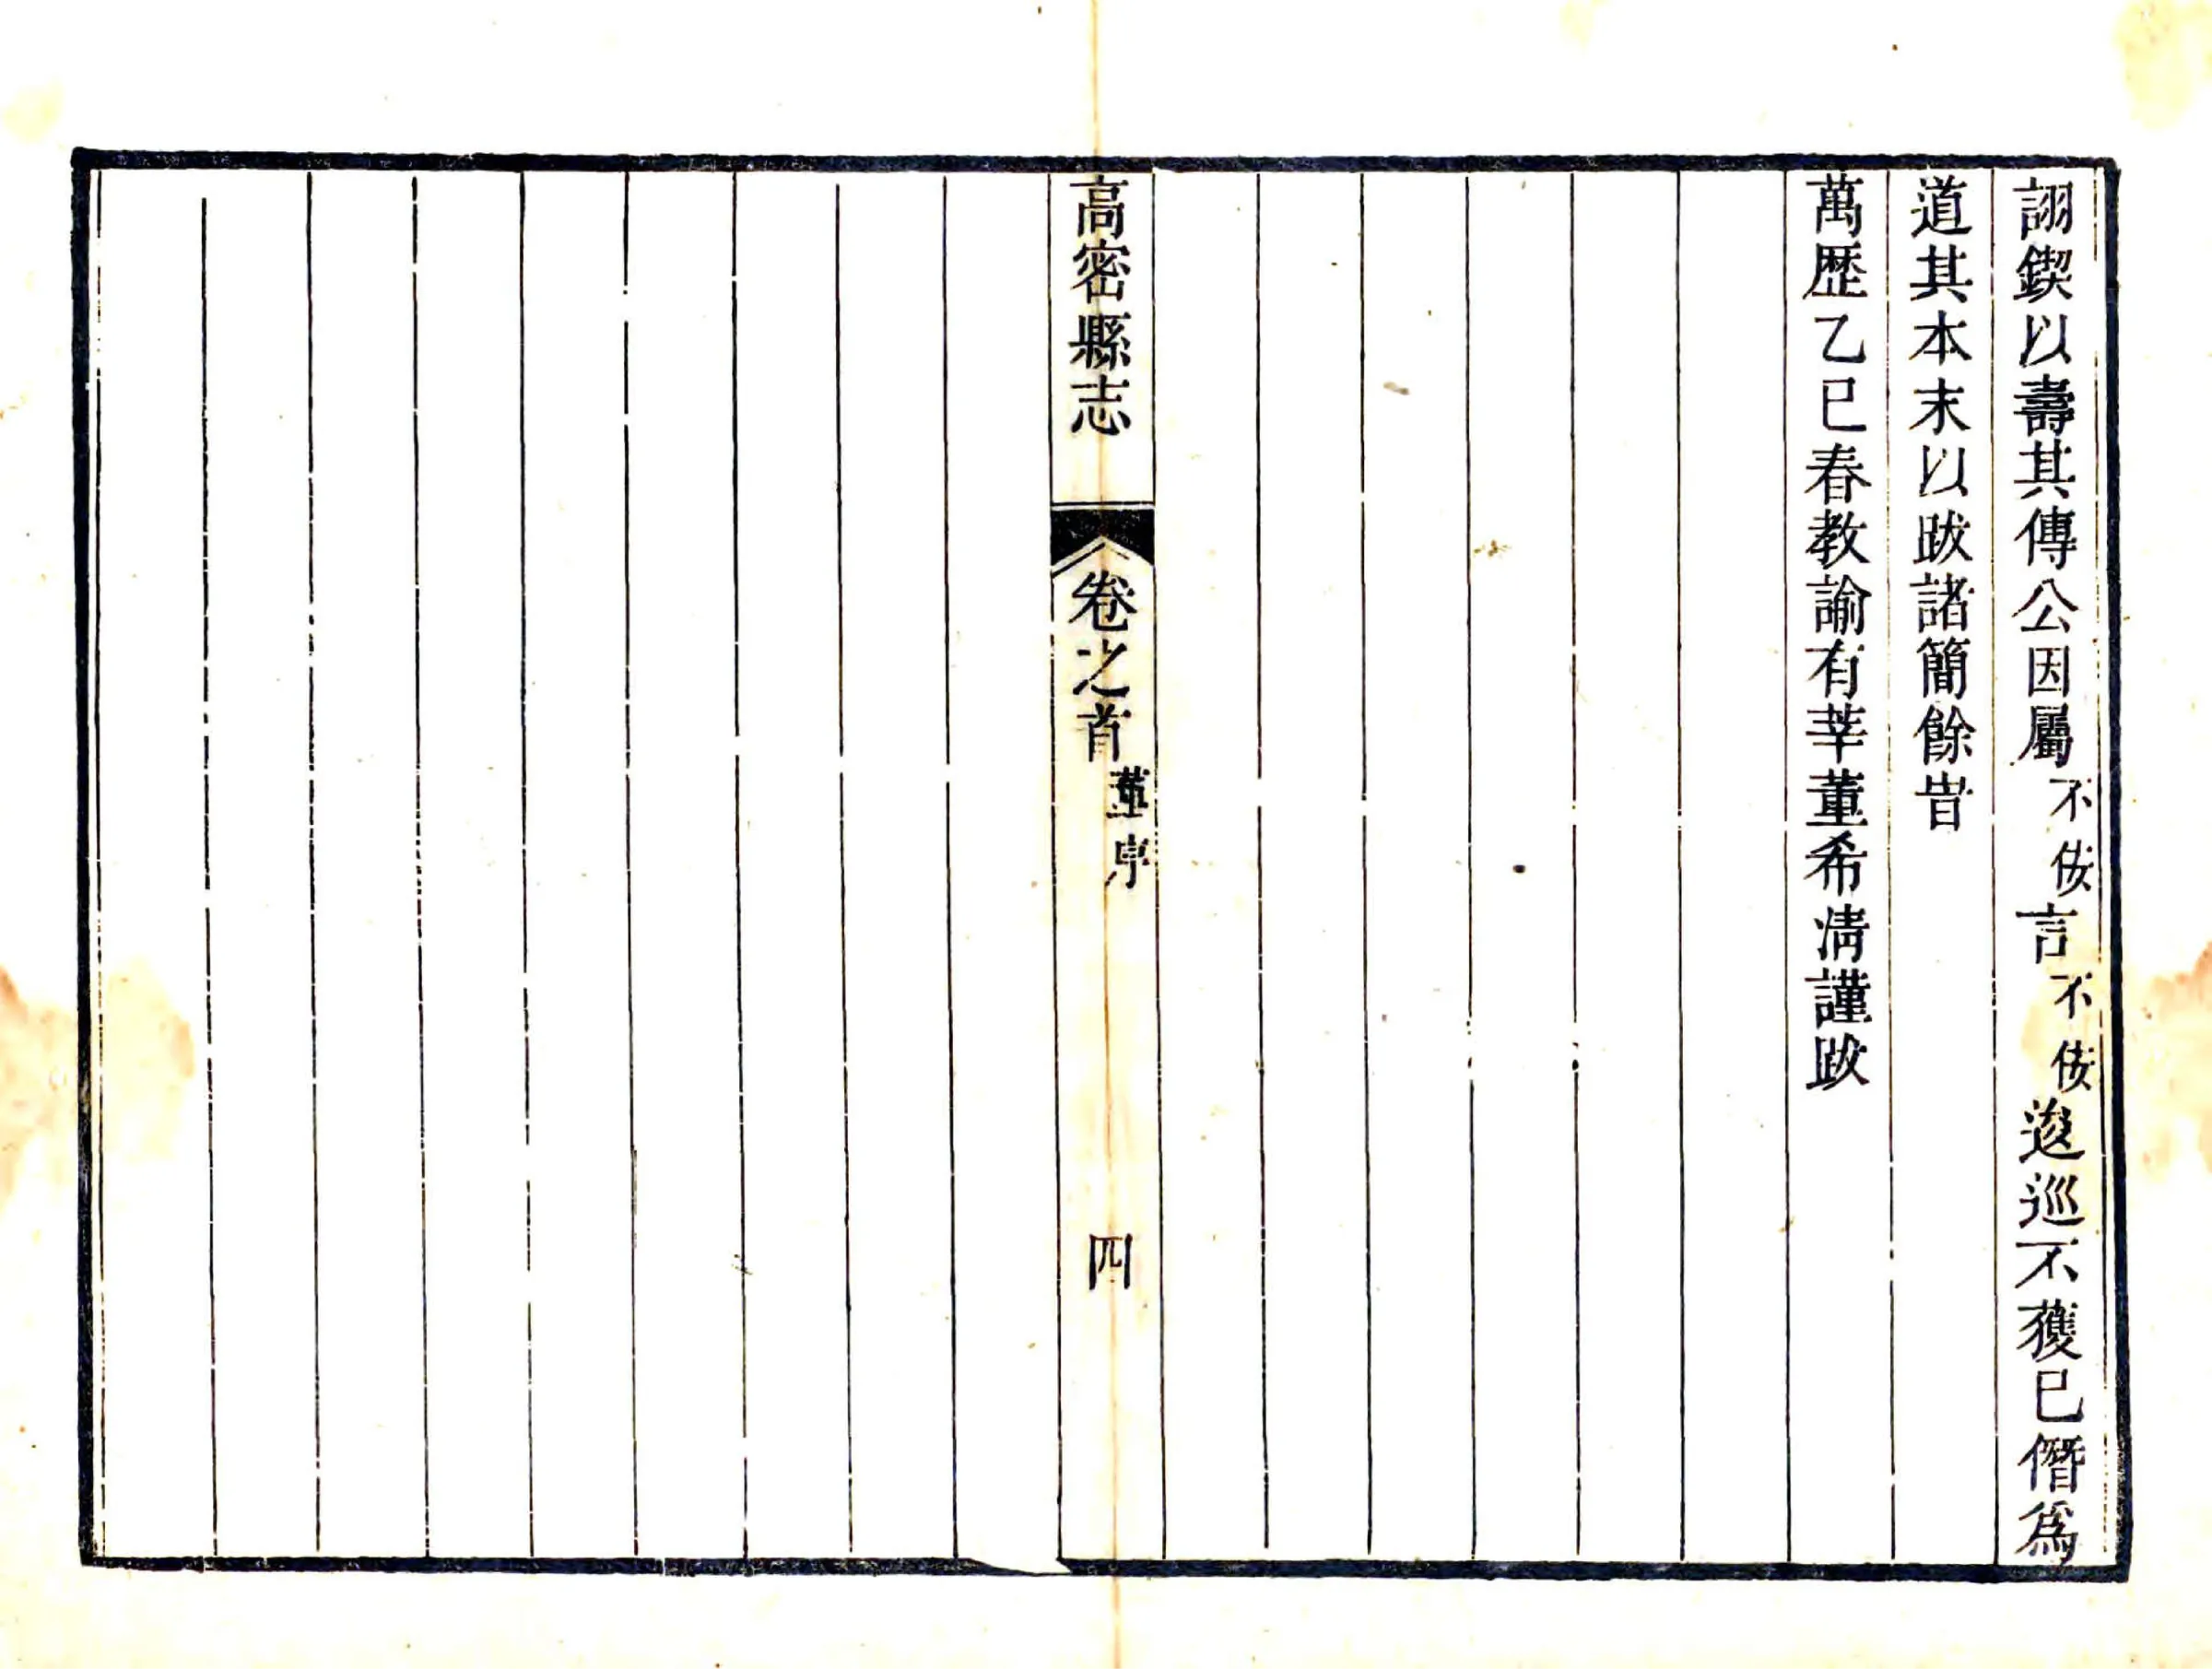 詡鍥以壽其傳公因屬不佞言不佞逡巡不獲已僭爲
道其本末以跋諸簡餘旹
萬歷乙巳春教諭有莘董希淸謹跋
高密縣志 卷之首 董序 四